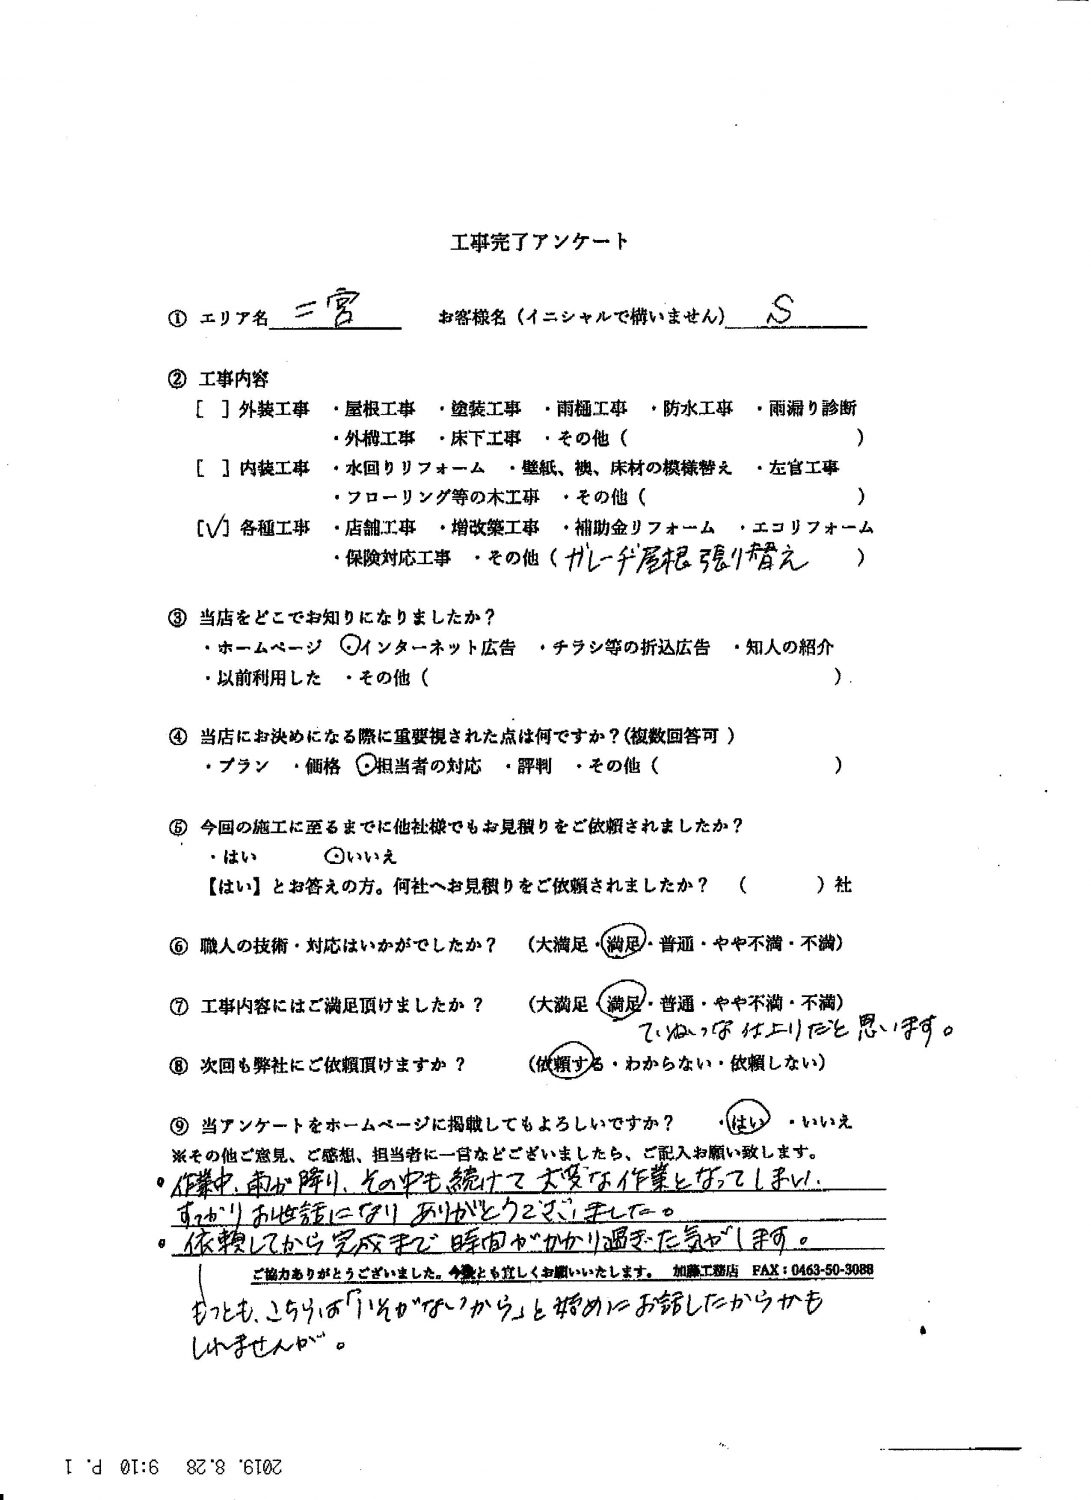 工事完了アンケート
① エリア名 二宮 お客様名（イニシャルで構いません） S
② 工事内容
[ ] 外装工事 ・屋根工事 ・塗装工事 ・雨樋工事 ・防水工事 ・雨漏り診断
・外構工事 ・床下工事 ・その他（ ）
[ ] 内装工事 ・水回りリフォーム ・壁紙、襖、床材の模様替え ・左官工事
・フローリング等の木工事 ・その他（ ）
[✓] 各種工事 ・店舗工事 ・増改築工事 ・補助金リフォーム ・エコリフォーム
・保険対応工事 ・その他（ ガレーヂ屋根張り替え ）
③ 当店をどこでお知りになりましたか？
・ホームページ ・インターネット広告 ・チラシ等の折込広告 ・知人の紹介
・以前利用した ・その他（ ）
④ 当店にお決めになる際に重要視された点は何ですか？（複数回答可 ）
・プラン ・価格 ・担当者の対応 ・評判 ・その他（ ）
⑤ 今回の施工に至るまでに他社様でもお見積りをご依頼されましたか？
・はい ・いいえ
【はい】とお答えの方。何社へお見積りをご依頼されましたか？ （ ）社
⑥ 職人の技術・対応はいかがでしたか？ （大満足・満足・普通・やや不満・不満）
⑦ 工事内容にはご満足頂けましたか？ （大満足・満足・普通・やや不満・不満）
ていねいな仕上りだと思います。
⑧ 次回も弊社にご依頼頂けますか？ （依頼する・わからない・依頼しない）
⑨ 当アンケートをホームページに掲載してもよろしいですか？ ・はい ・いいえ
※その他ご意見、ご感想、担当者に一言などございましたら、ご記入お願い致します。
。作業中、雨が降り、その中も続けて大変な作業となってしまい、
すっかりお世話になりありがとうございました。
。依頼してから完成まで時間がかかり過ぎた気がします。
ご協力ありがとうございました。今後とも宜しくお願いいたします。 加藤工務店 FAX：0463-50-3088
もっとも、こちらは「いそがないから」と始めにお話したからかも
しれませんが。
2019. 8.28 9:10 P. 1